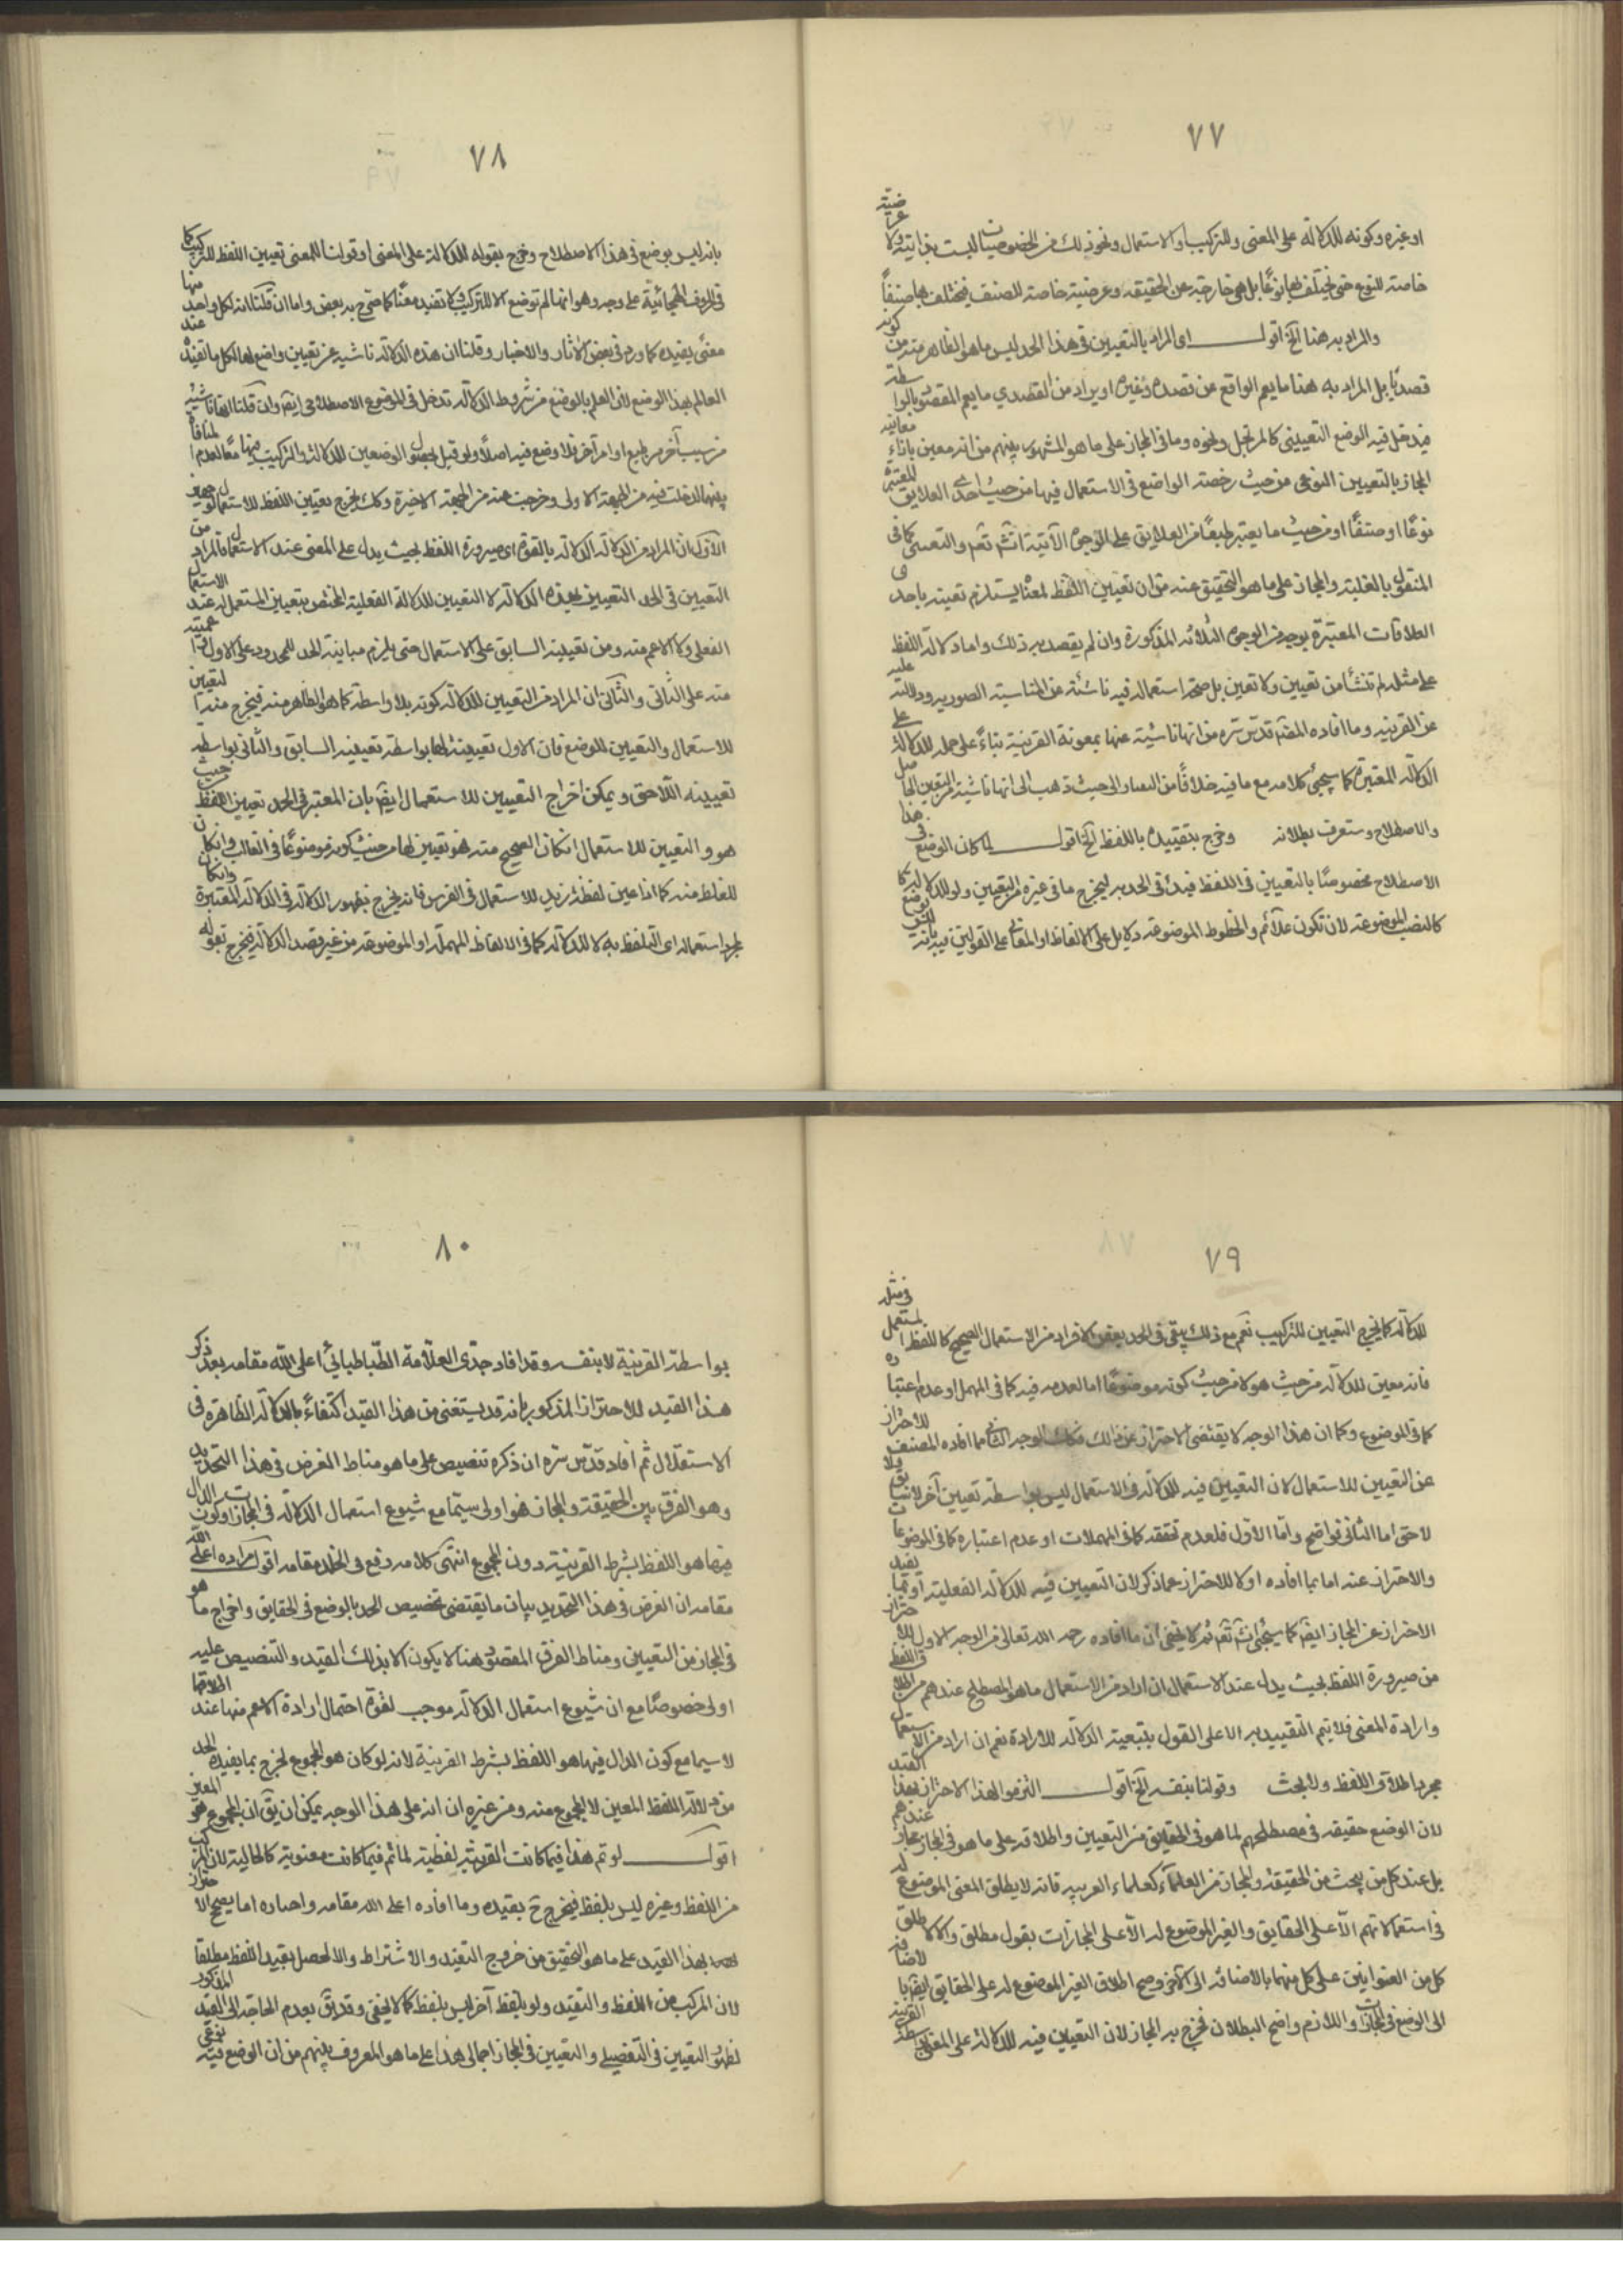 ٧٧
او غيره وكونه للدلالة على المعنى وللتركيب او الاستعمال ونحو ذلك من الخصوصيات ليست بذاتية ولا عرضية
خاصة للنوع حتى يختلف بها نوعًا بل هى خارجة عن الحقيقة وعرضية خاصة للصنف فيختلف بها صنفاً
والمراد به هنا الخ اقول اى المراد بالتعيين فى هذا الحد ليس ما هو الظاهر منه من كونه
قصديًا بل المراد به هنا ما يعم الواقع عن قصد وغيره او يراد من القصدي ما يعم المقصود بالواسطة
فيدخل فيه الوضع التعييني كالمرتجل ونحوه وما فى المجاز على ما هو المشهور بينهم من انه معين بازاء معانيه
المجاز بالتعيين النوعى من حيث رخصة الواضع فى الاستعمال فيها من حيث احدى العلايق المعتبرة
نوعًا او صنفًا او من حيث ما يعتبر طبعًا من العلايق على الوجوه الآتية انش تعم والتعينى كما فى
المنقول بالغلبة والمجاز على ما هو التحقيق عنه من ان تعيين اللفظ لمعنًا يستلزم تعينه باحدى
العلاقات المعتبرة بوجه من الوجوه الثلاثه المذكورة وان لم يقصد به ذلك واما دلالة اللفظ
على مثله لم تنشأ من تعيين ولا تعين بل صحة استعماله فيه ناشئة عن المناسبة الصوريه ودلالته عليه
عن القرينة وما افاده المصنف قدس سره من انها ناشئة عنها بمعونة القرينة بناءً على حمله للدلالة على
الدلالة المعتبرة كما سيجئ كلامه مع ما فيه خلافًا من حيث ذهب الى انها ناشئة من التعين الحاصل
والاصطلاح وستعرف بطلانه وخرج بتقييده باللفظ الخ اقول لما كان الوضع فى هذا
الاصطلاح مخصوصًا بالتعيين فى اللفظ قيد فى الحد به ليخرج ما فى غيره من التعيين ولو للدلالة
كالنصب الموضوعة لان تكون علائم والخطوط الموضوعة دلايل على الالفاظ او المعانى على القولين فيه بانه
٧٨
بانه ليس بوضع فى هذا الاصطلاح وخرج بقوله للدلالة على المعنى او قولنا للمعنى تعيين اللفظ للتركيب كما
فى الحروف الهجائية على وجه وهو انها لم توضع الا للتركيب ولا تفيد معنًا كما صرح به بعض واما ان قلنا انه لكل واحد منها
معنًى يفيده كما ورد فى بعض الآثار والاخبار وقلنا ان هذه الدلالة ناشية عن تعيين واضع لها لكل ما تفيده عند
العالم بهذا الوضع لان العلم بالوضع من شروط الدلالة تدخل فى الموضوع الاصطلاحى ايضا وان قلنا انها ناشية
من سبب آخر من طبع او امر آخر فلا وضع فيه اصلاً ولو قيل بحصول الوضعين للدلالة والتركيب فيها معًا لعدم المنافاة
بينهما لدخلت فيه من الجهة الاولى وخرجت منه من الجهة الاخيرة وكذلك يخرج تعيين اللفظ للاستعمال
الاول ان المراد من الدلالة الدلالة بالقوة اى صيرورة اللفظ بحيث يدل على المعنى عند الاستعمال فالمراد من
التعيين فى الحد التعيين لهذه الدلالة لا التعيين للدلالة الفعلية المختص بتعيين المستعمل له عند الاستعمال
الفعلى ولا الاعم منه ومن تعيينه السابق على الاستعمال حتى يلزم مباينة الحد للمحدود على الاول
منه على الثانى والثانى ان المراد من التعيين للدلالة كونه بلا واسطة كما هو الظاهر منه فيخرج منه التعيين
للاستعمال والتعيين للوضع فان الاول تعيينه لها بواسطة تعيينه السابق والثانى بواسطة
تعيينه اللاحق ويمكن اخراج التعيين للاستعمال ايضا بان المعتبر فى الحد تعيين اللفظ من حيث
هو والتعيين للاستعمال ان كان الصحيح منه فهو تعيين لها من حيث كونه موضوعًا فى الغالب وان كان
للغلط منه كما اذا عين لفظة زيد للاستعمال فى الفرس فانه يخرج بظهور الدلالة فى الدلالة المعتبرة وان كان
لمجرد استعماله اى التلفظ به لا للدلالة كما فى الالفاظ المهملة او الموضوعة من غير قصد الدلالة فيخرج بقوله
٧٩
للدلالة كما يخرج التعيين للتركيب نعم مع ذلك يبقى فى الحد بعض الافراد من الاستعمال الصحيح كاللفظ المستعمل فى مثله
فانه معين للدلالة من حيث هو لا من حيث كونه موضوعًا اما لعدمه فيه كما فى المهمل او عدم اعتباره
كما فى الموضوع وكما ان هذا الوجه لا يقتضى الاحتراز عن ذلك فكذلك الوجه الثانى مما افاده المصنف للاحتراز
عن التعيين للاستعمال لان التعيين فيه للدلالة فى الاستعمال ليس بواسطة تعيين آخر لا سابق ولا
لاحق اما الثانى فواضح واما الاول فلعدم تحققه كما فى المهملات او عدم اعتباره كما فى الموضوعات
والاحتراز عنه اما بما افاده اولا للاحتراز عما ذكر لان التعيين فيه للدلالة الفعلية او بما يفيد
الاحتراز عن المجاز ايضا كما سيجئ انش تعم ثم لا يخفى ان ما افاده رحمه الله تعالى من الوجه الاول للاحتراز
من صيرورة اللفظ بحيث يدل عند الاستعمال ان اراد من الاستعمال ما هو المصطلح عندهم من اطلاق اللفظ
وارادة المعنى فلا يتم التقييد به الا على القول بتبعية الدلالة للارادة نعم ان اراد من الاستعمال
مجرد اطلاق اللفظ ولا بحث وقولنا بنفسه الخ اقول التزموا لهذا الاحتراز بهذا القيد
لان الوضع حقيقة فى مصطلحهم لما هو فى الحقايق من التعيين واطلاقه على ما هو فى المجاز مجاز عندهم
بل عند كل من يبحث من الحقيقة والمجاز من العلماء كعلماء العربيه فانه لا يطلق المعنى الموضوع له
فى استعمالاتهم الا على الحقايق والغير الموضوع له الا على المجازات بقول مطلق والا لاطلق
كل من العنوانين على كل منهما بالاضافه الى الآخر وصح اطلاق الغير الموضوع له على الحقايق ايضا بالاضافة
الى الوضع فى المجازات واللازم واضح البطلان فخرج به المجاز لان التعيين فيه للدلالة على المعنى بواسطة القرينة
٨٠
بواسطة القرينة لا بنفسه وقد افاد جدّى العلّامة الطّباطبائىّ اعلى الله مقامه بعد ذكر
هذا القيد للاحتراز المذكور بانه قد يستغنى من هذا القيد اكتفاءً بالدلالة الظاهرة فى
الاستقلال ثم افاد قدّس سرّه ان ذكره تنصيص على ما هو مناط الغرض فى هذا التحديد
وهو الفرق بين الحقيقة والمجاز فهو اولى سيّما مع شيوع استعمال الدلالة فى المجازات وكون الدال
فيها هو اللفظ بشرط القرينة دون المجموع انتهى كلامه رفع فى الخلد مقامه اقول مراده اعلى الله
مقامه ان الغرض فى هذا التحديد بيان ما يقتضى تخصيص الحد بالوضع فى الحقايق واخراج ما هو
فى المجاز من التعيين ومناط الفرق المقصود هنا لا يكون الا بذلك القيد والتنصيص عليه
اولى خصوصًا مع ان شيوع استعمال الدلالة موجب لقوة احتمال ارادة الاعم منها عند اطلاقها
لا سيما مع كون الدال فيها هو اللفظ بشرط القرينة لانه لو كان هو المجموع لخرج بما يفيده الحد
من دلالة اللفظ المعين لا المجموع منه ومن غيره ان انه على هذا الوجه يمكن ان يق ان المجموع هو المعين
اقول لو تم هذا فيما كانت القرينة لفظية لما تم فيما كانت معنوية كالحالية لان المركب
من اللفظ وغيره ليس بلفظ فيخرج ح بقيده وما افاده اعلى الله مقامه اما يصح الاحتراز
بهذا القيد على ما هو التحقيق من خروج التقيد والاشتراط والا لحصل بقيد اللفظ مطلقا
لان المركب من اللفظ والتقيد ولو بلفظ آخر ليس بلفظ كما لا يخفى وقد يق بعدم الحاجة الى القيد المذكور
لظهور التعيين فى التفصيلى والتعيين فى المجاز اجمالى هذا على ما هو المعروف بينهم من ان الوضع فيه نوعى